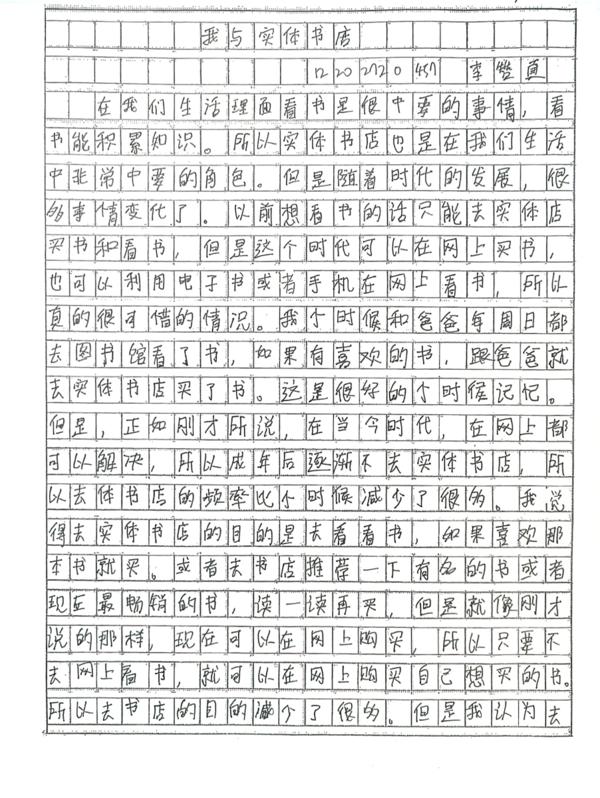 我与实体书店
12 20 2720 457 李 真
在我们生活理面看书是很中要的事情，看
书能积累知识。所以实体书店也是在我们生活
中非常中要的角色。但是随着时代的发展，很
多事情变化了。以前想看书的话只能去实体店
买书和看书，但是这个时代可以在网上买书，
也可以利用电子书或者手机在网上看书，所以
真的很可惜的情况。我个时候和爸爸每周日都
去图书馆看了书，如果有喜欢的书，跟爸爸就
去实体书店买了书。这是很好的个时候记忆。
但是，正如刚才所说，在当今时代，在网上都
可以解决，所以成年后逐渐不去实体书店，所
以去体书店的频率比个时候减少了很多。我说
得去实体书店的目的是去看看书，如果喜欢那
本书就买。或者去书店推荐一下有名的书或者
现在最畅销的书，读一读再买，但是就像刚才
说的那样，现在可以在网上购买，所以只要不
去网上看书，就可以在网上购买自己想买的书。
所以去书店的目的减少了很多。但是我认为去